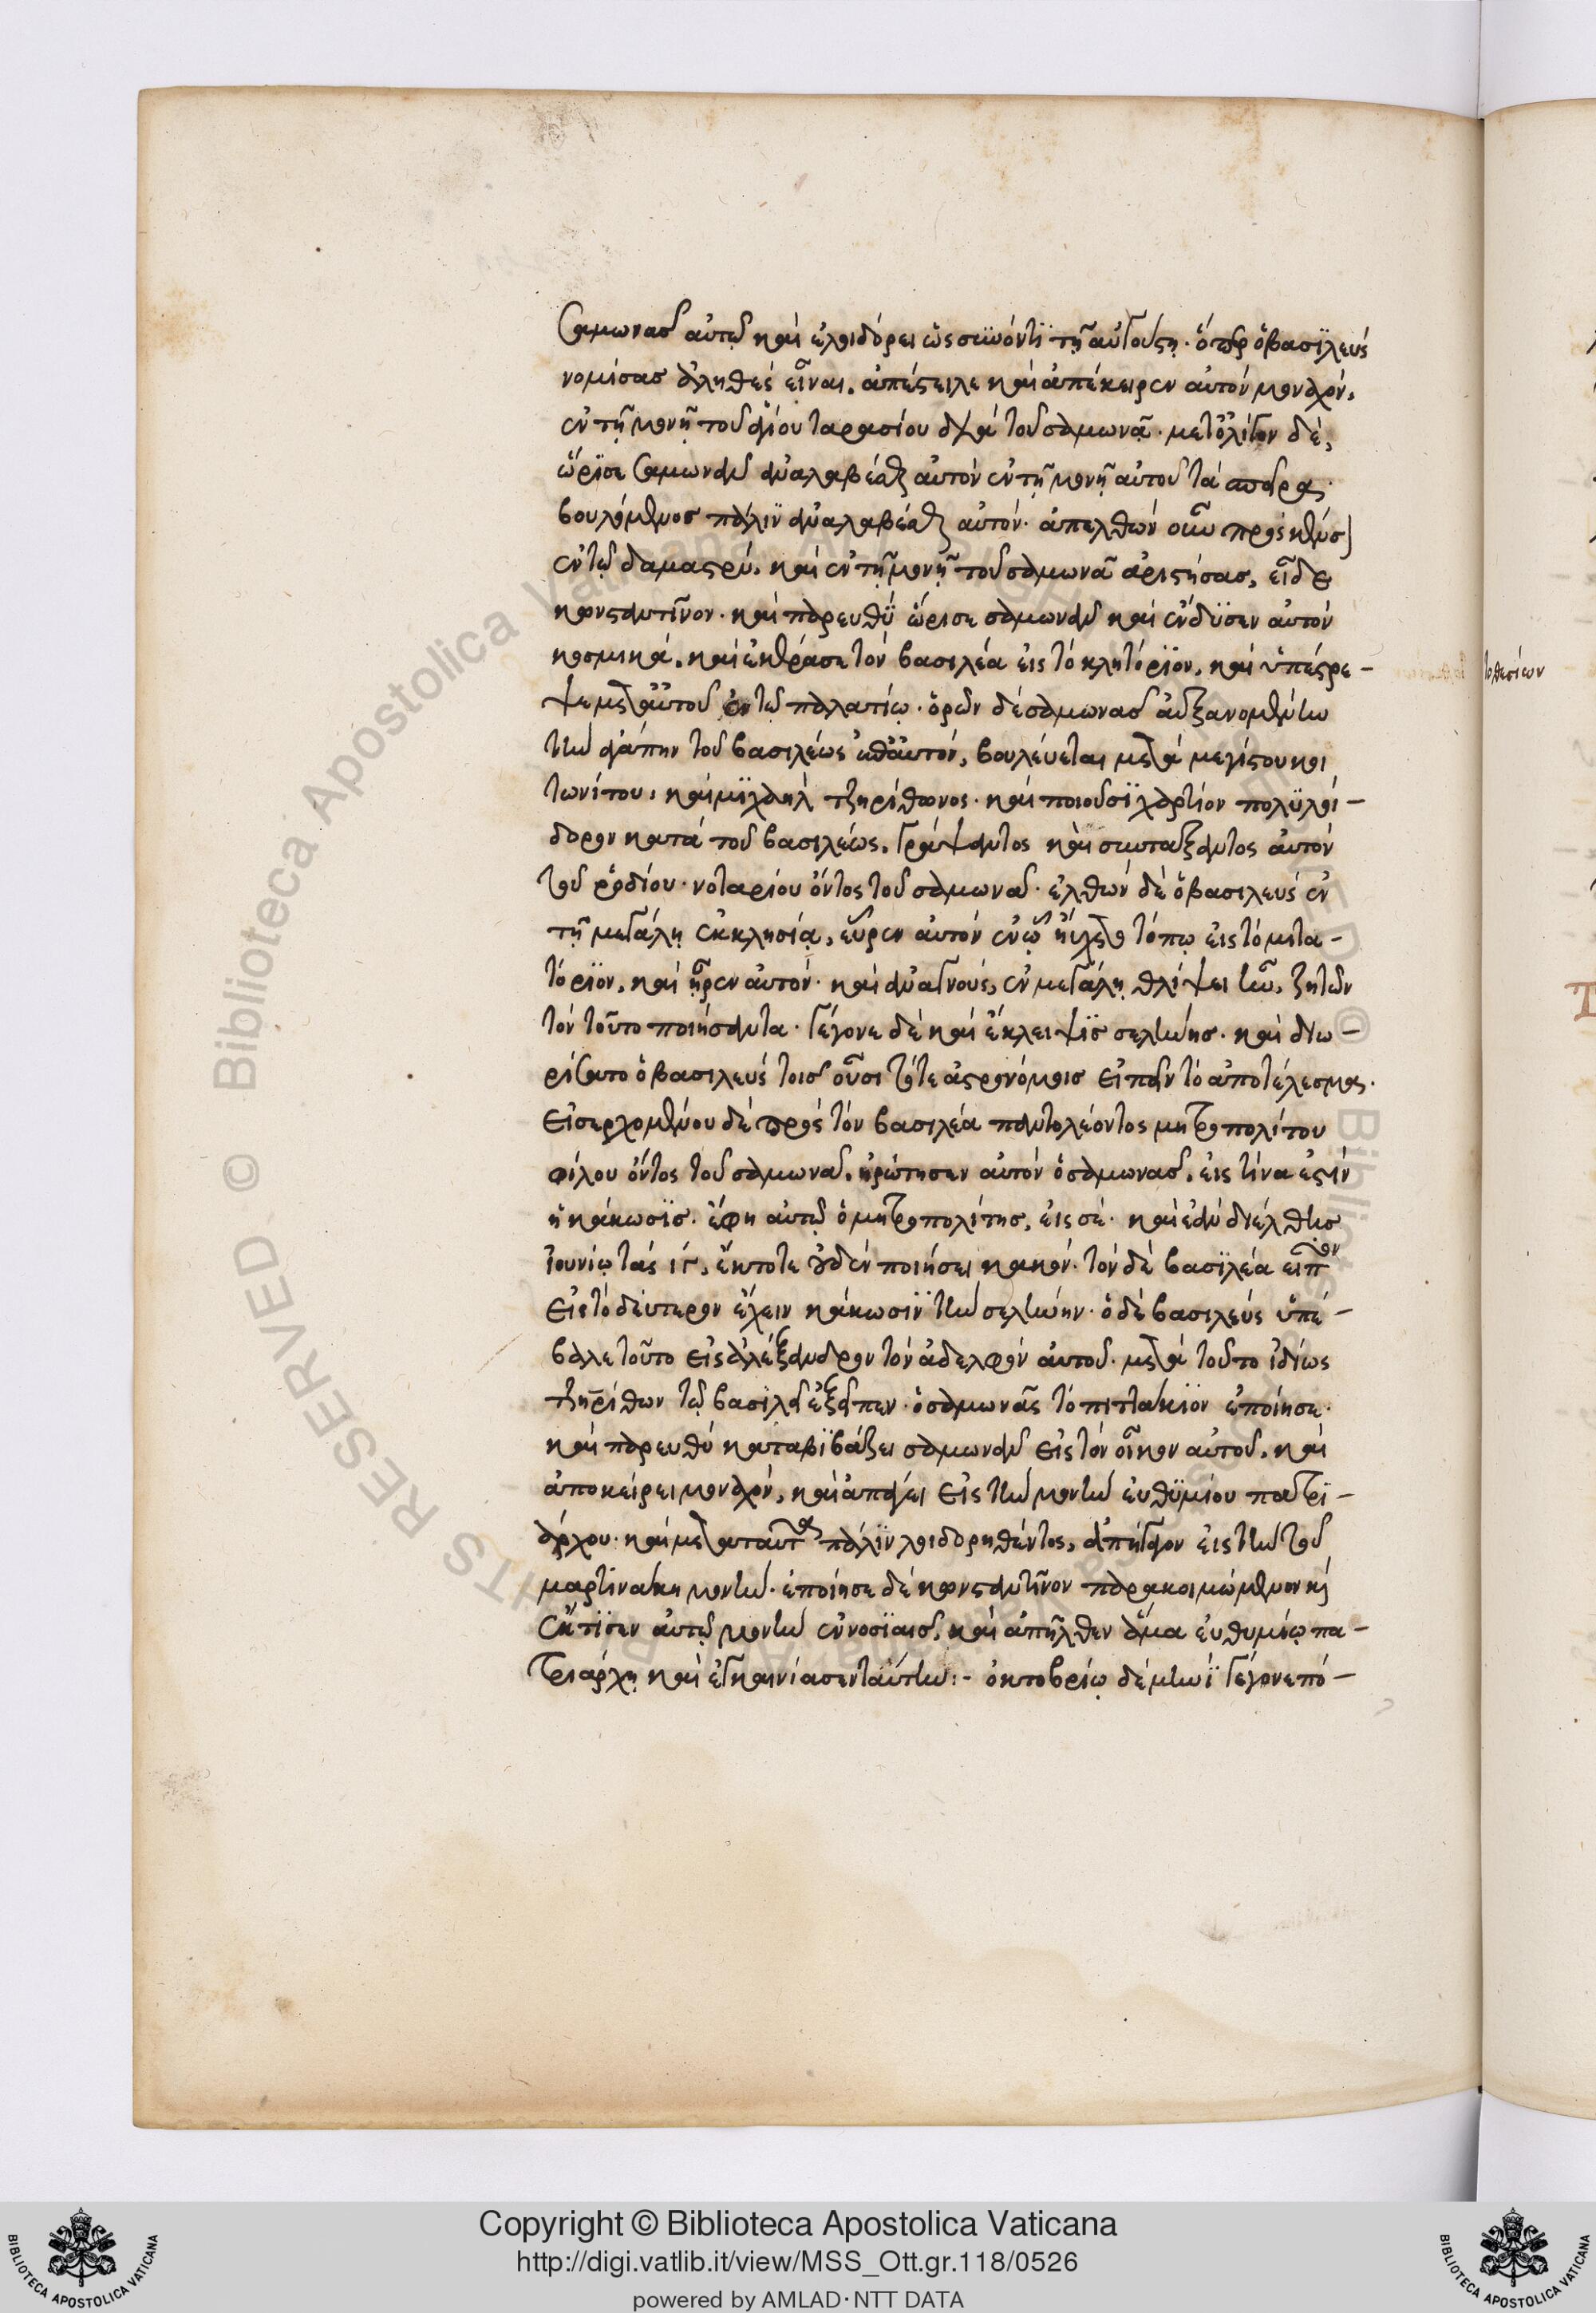 Σαμωνας αὐτῷ καὶ ἐλοιδόρει ὡς συνόντϊ τῇ αὐγούστῃ· ὅπερ ὁ βασϊλεὺς
νομίσας ἀληθὲς εἶναι, ἀπέστειλε καὶ ἀπέκειρεν αὐτὸν μοναχόν,
ἐν τῇ μονῇ τοῦ ἁγίου ταρασίου διὰ τοῦ σαμωνᾶ· μετ' ὀλίγον δὲ,
ὥρϊσε σαμωνὰν ἀναλαβέσθαι αὐτὸν ἐν τῇ μονῇ αὐτοῦ τὰ σπείρα·
βουλόμενος πάλϊν ἀναλαβέσθαι αὐτόν· ἀπελθὼν οὖν πρὸς κένσον
ἐν τῷ δαμαστρύ, καὶ ἐν τῇ μονῇ τοῦ σαμωνᾶ ἀριστήσας, εἶδε
κωνσταντῖνον· καὶ παρευθὺ ὥρισε σαμωνὰν καὶ ἐνέδϋσεν αὐτὸν
κοσμικά, καὶ ἐκέρασε τὸν βασιλέα εἰς τὸ κλητόρϊον, καὶ ὑπέστρε-
ψε μετ' αὐτοῦ ἐν τῷ παλατίῳ· ὁρῶν δὲ σαμωνας αὐξανομένην
τὴν ἀγάπην τοῦ βασιλέως εἰς αὐτόν, βουλεύεται μετὰ μεγίστου κοι
τωνίτου, καὶ μϊχαὴλ τζηρίθωνος· καὶ ποιοῦσϊ χαρτίον πολϋλοί-
δορον κατὰ τοῦ βασιλέως, γράψαντος καὶ συνταξαντος αὐτὸν
τοῦ ῥοδίου· νοταρίου ὄντος τοῦ σαμωνα· ἐλθὼν δὲ ὁ βασιλεὺς ἐν
τῇ μεγάλῃ ἐκκλησίᾳ, εὗρεν αὐτὸν ἐν ᾧ ηὔχετο τόπῳ εἰς τὸ μιτα-
τόρϊον, καὶ ἦρεν αὐτόν· καὶ ἀναγνούς, ἐν μεγάλῃ θλίψει ἦν, ζητῶν
τὸν τοῦτο ποιήσαντα· γέγονε δὲ καὶ ἔκλειψϊς σελήνης· καὶ διω-
ρίσατο ὁ βασιλεὺς τοις οὖσι τότε ἀστρονόμοις εἰπεῖν τὸ ἀποτέλεσμα·
εἰσερχομένου δὲ πρὸς τὸν βασιλέα πανταλέοντος μητροπολίτου
φίλου ὄντος τοῦ σαμωνα, ἠρώτησεν αὐτὸν ὁ σαμωνας, εἰς τίνα ἐστὶν
ἡ κάκωσϊς· ἔφη αὐτῷ ὁ μητροπολίτης, εἰς σέ· καὶ ἐὰν διέλθῃς
ἰουνίῳ τὰς ιγ, ἔκτοτε οὐδὲν ποιήσει κακόν· τὸν δὲ βασϊλέα εἶπεν
εἰς τὸ δεύτερον ἔχειν κάκωσϊν τὴν σελήνην· ὁ δὲ βασιλεὺς ὑπέ-
βαλε τοῦτο εἰς ἀλέξανδρον τὸν ἀδελφὸν αὐτοῦ· μετὰ τοῦτο ἰδίως
τζηρίθων τῷ βασϊλεῖ ἐξεῖπεν· ὁ σαμωνᾶς τὸ πιττάκϊον ἐποίησε·
καὶ παρευθὺ καταβϊβάζει σαμωνὰν εἰς τὸν οἶκον αὐτοῦ, καὶ
ἀποκείρει μοναχόν, καὶ ἀπάγει εἰς τὴν μονὴν εὐθϋμίου πατρϊ-
άρχου· καὶ μετὰ ταῦτα πάλϊν λοιδορηθέντος, ἀπήγαγον εἰς τὴν τοῦ
μαρτινάκη μονήν· ἐποίησε δὲ κωνσταντῖνον παρακοιμώμενον καὶ
ἔκτϊσεν αὐτῷ μονὴν ἐν νοσϊαις, καὶ ἀπῆλθεν ἅμα εὐθυμίῳ πα-
τριάρχῃ καὶ ἐγκαινίασεν ταύτην:- ὀκτοβρίῳ δὲ μηνϊ γέγονε πό-
τοθεσίων